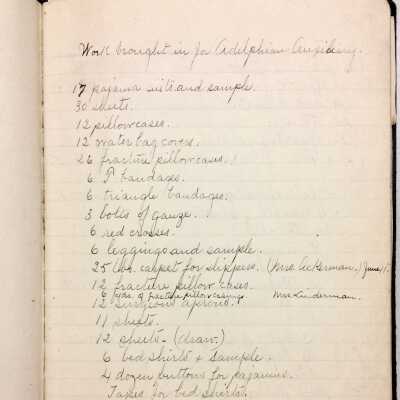 Work brought in for Adelphian Auxiliary.
17 pajama suits and sample.
30 sheets.
12 pillowcases.
12 water bag covers.
26 fracture pillowcases.
6 T bandages.
6 triangle bandages.
3 bolts of gauze.
6 red crosses.
6 leggings and sample.
25 lbs. carpet for slippers. (Mrs. Ackerman.) June
12 fracture pillow cases.
6 of fracture pillow casings Mrs. Linderman.
12 surgeons aprons.
11 sheets.
12 sheets - (draw.)
6 bed shirts & sample.
4 dozen buttons for pajamas.
Tapes for bed shirts.